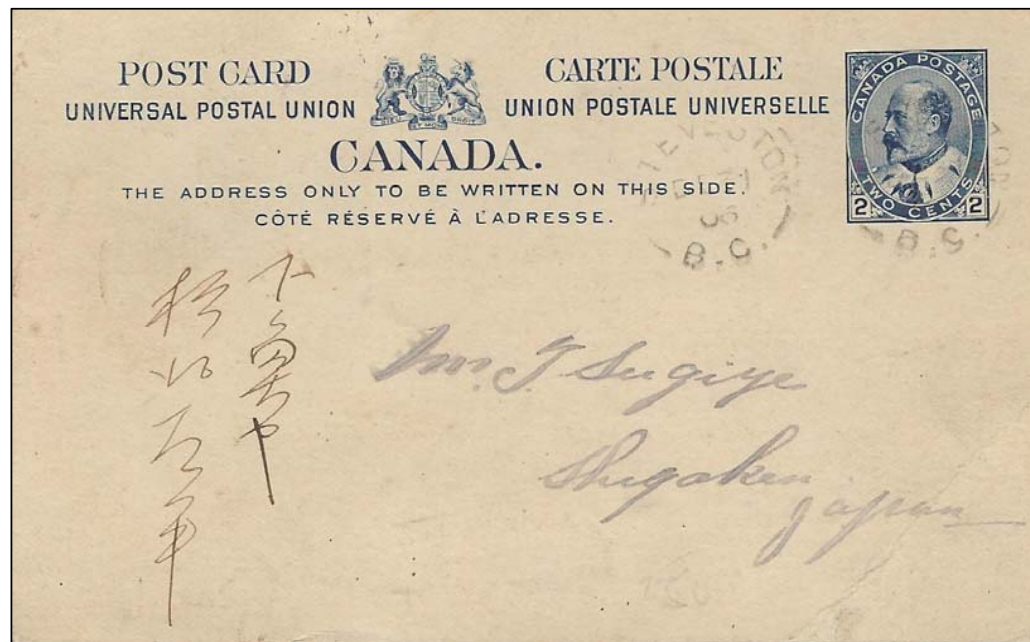 POST CARD
UNIVERSAL POSTAL UNION
CARTE POSTALE
UNION POSTALE UNIVERSELLE
CANADA.
THE ADDRESS ONLY TO BE WRITTEN ON THIS SIDE.
CÔTÉ RÉSERVÉ À L'ADRESSE.
CANADA POSTAGE
2 TWO CENTS 2
B.C.
B.C.
Mr. T Sugiye
Shigaken
Japan